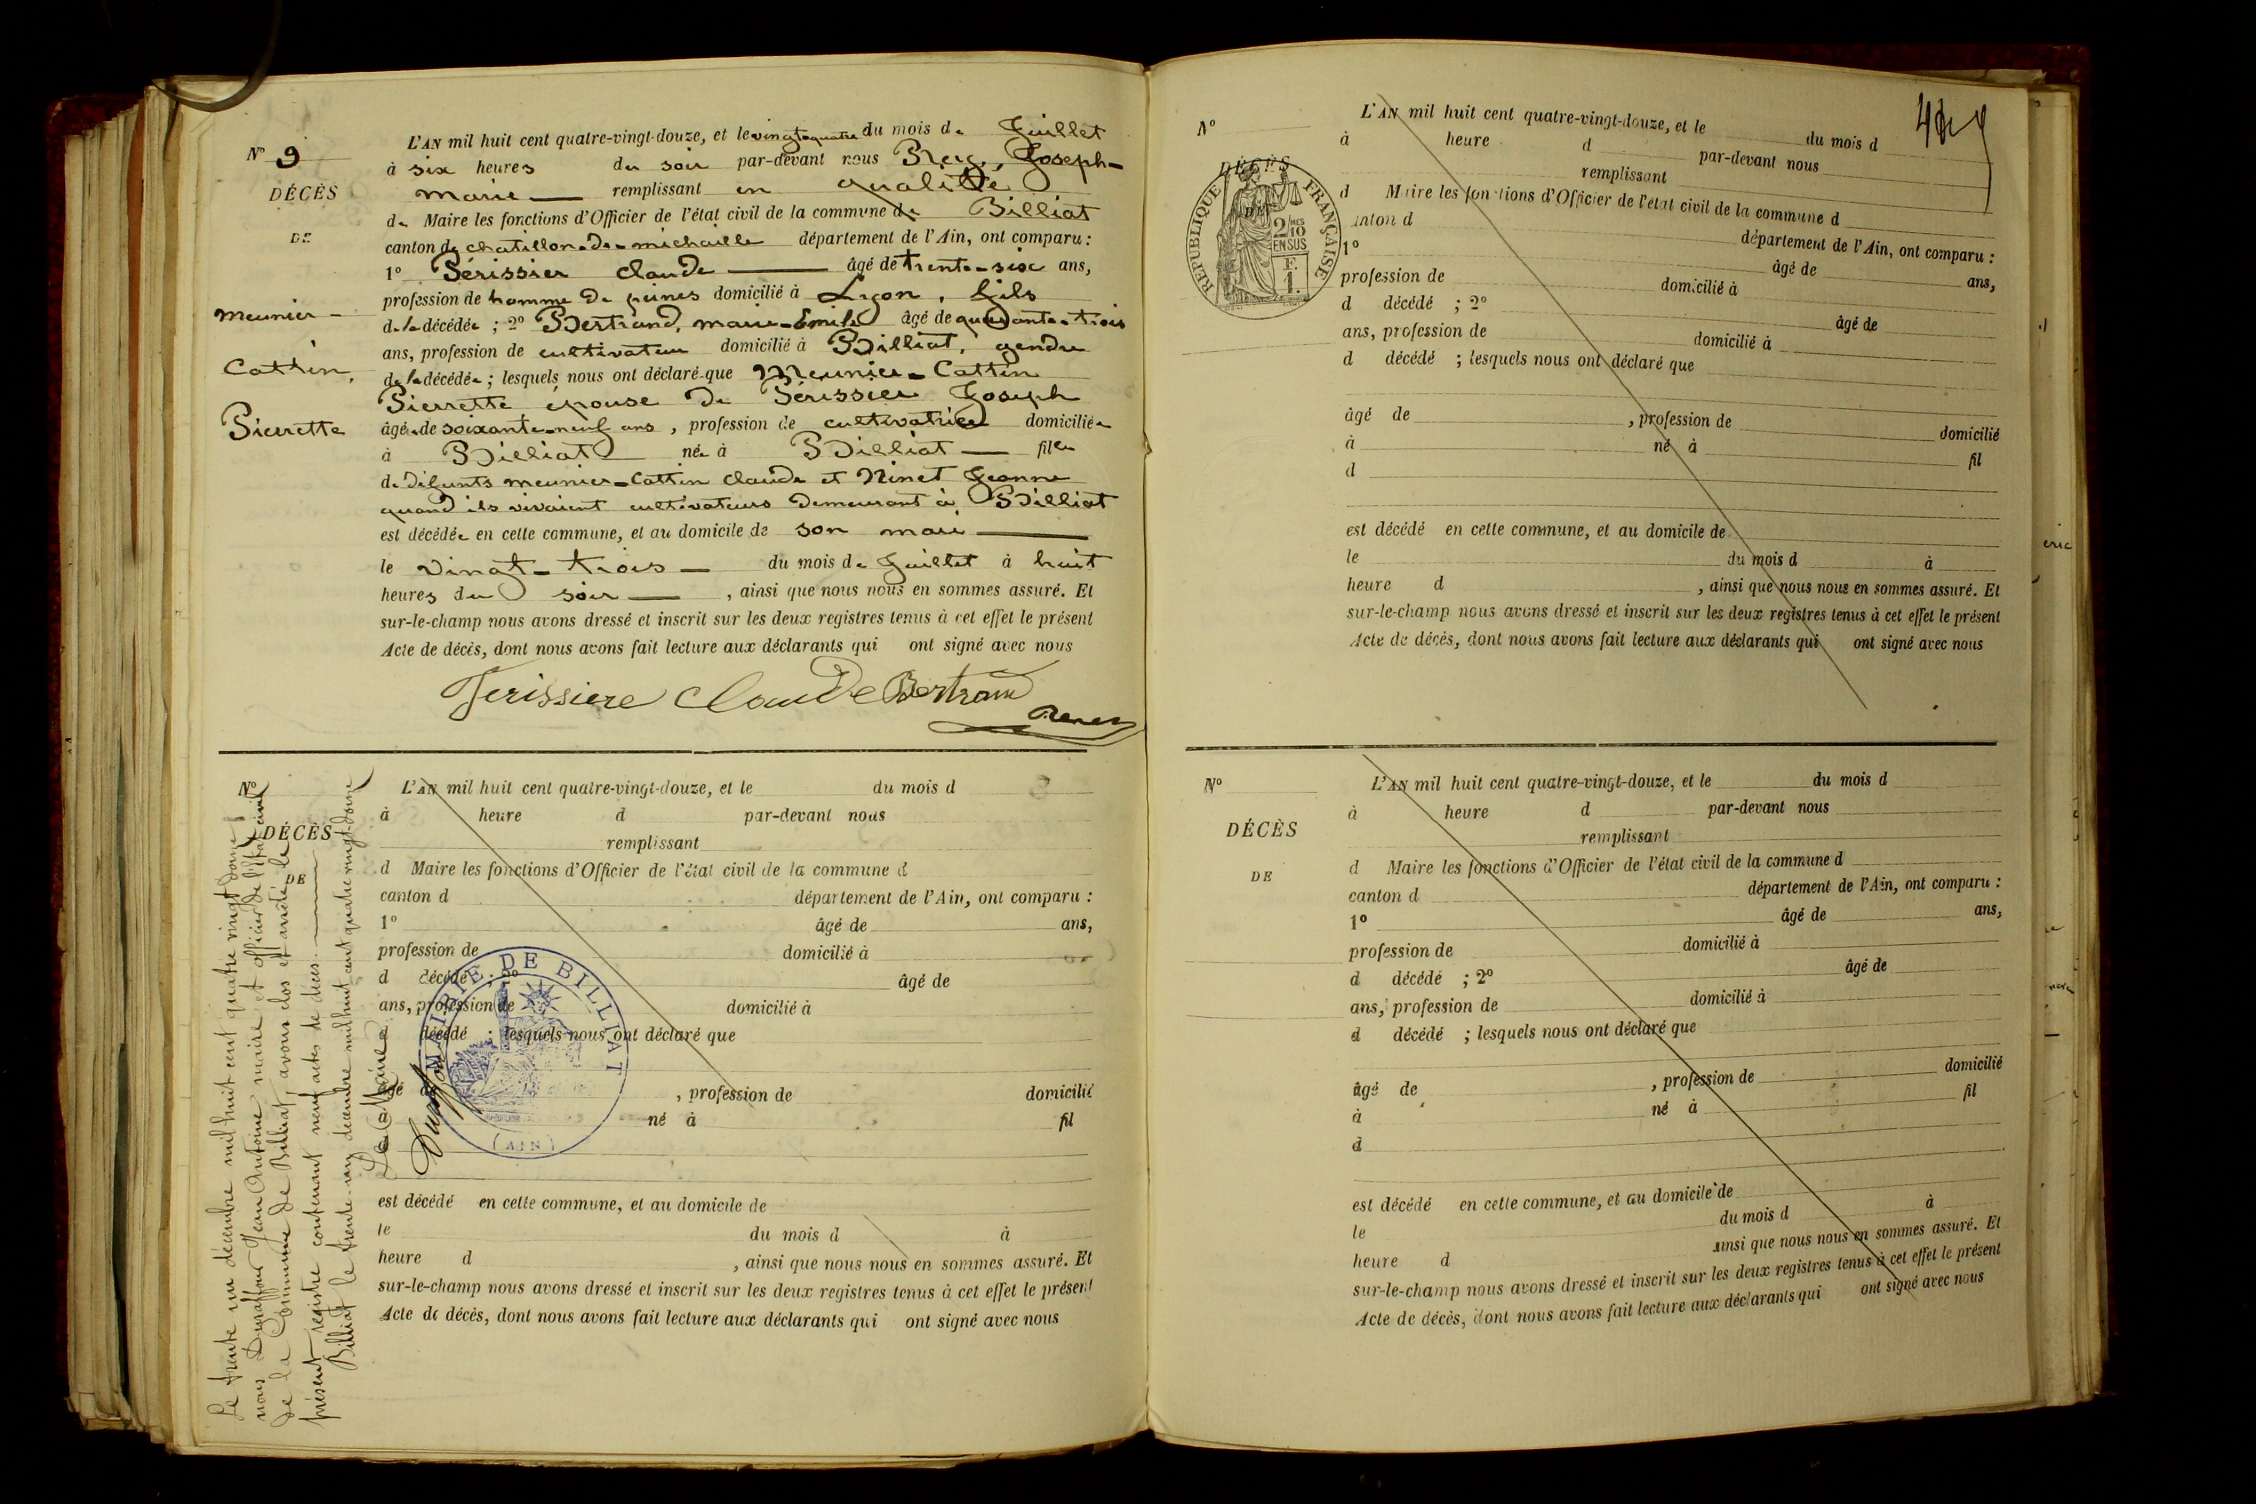 N° 9
DÉCÈS
DE
Meunier-
Cattin,
Pierrette
L'AN mil huit cent quatre-vingt-douze, et le vingt-quatre du mois de Juillet
à six heures du soir par-devant nous Joseph-
Marie remplissant en qualité
de Maire les fonctions d'Officier de l'état civil de la commune de Billiat
canton de chatillon-de-michaille département de l'Ain, ont comparu :
1° Périssier claude âgé de trente-six ans,
profession de homme de peines domicilié à Lyon, fils
de la décédée ; 2° Bertrand, marie-Emile âgé de quarante-trois
ans, profession de cultivateur domicilié à Billiat, gendre
de la décédée ; lesquels nous ont déclaré que Meunier-Cattin
Pierrette épouse de Périssier Joseph
âgée de soixante-neuf ans, profession de cultivatrice domiciliée
à Billiat née à Billiat fille
de défunts meunier-Cattin claude et Ninet Jeanne
quand ils vivaient cultivateurs demeurant à Billiat
est décédée en cette commune, et au domicile de son mari
le vingt-trois du mois de Juillet à huit
heures du soir, ainsi que nous nous en sommes assuré. Et
sur-le-champ nous avons dressé et inscrit sur les deux registres tenus à cet effet le présent
Acte de décès, dont nous avons fait lecture aux déclarants qui ont signé avec nous
Perissiere Claude Bertrand
N°
DÉCÈS
DE
L'AN mil huit cent quatre-vingt-douze, et le du mois d
à heure d par-devant nous
remplissant
d Maire les fonctions d'Officier de l'état civil de la commune d
canton d département de l'Ain, ont comparu :
1° âgé de ans,
profession de domicilié à
d décédé ; 2° âgé de
ans, profession de domicilié à
d décédé ; lesquels nous ont déclaré que
âgé d , profession de domicilié
à né à fil
est décédé en cette commune, et au domicile de
le du mois d à
heure d , ainsi que nous nous en sommes assuré. Et
sur-le-champ nous avons dressé et inscrit sur les deux registres tenus à cet effet le présent
Acte de décès, dont nous avons fait lecture aux déclarants qui ont signé avec nous
Le trente un décembre mil huit cent quatre vingt douze
nous Duraffour Jean Antoine maire et officier de l'état civil
de la Commune de Billiat, avons clos et arrêté le
présent registre contenant neuf actes de décès.
Billiat le trente-un décembre mil huit cent quatre vingt-douze
Le Maire
Duraffour
MAIRIE DE BILLIAT
(AIN)
N°
DÉCÈS
RÉPUBLIQUE FRANÇAISE
2/10 EN SUS
F.
1.
L'AN mil huit cent quatre-vingt-douze, et le du mois d
à heure d par-devant nous
remplissant
d Maire les fonctions d'Officier de l'état civil de la commune d
anton d département de l'Ain, ont comparu :
1° âgé de ans,
profession de domicilié à
d décédé ; 2° âgé de
ans, profession de domicilié à
d décédé ; lesquels nous ont déclaré que
âgé de , profession de domicilié
à né à fil
d
est décédé en cette commune, et au domicile de
le du mois d à
heure d , ainsi que nous nous en sommes assuré. Et
sur-le-champ nous avons dressé et inscrit sur les deux registres tenus à cet effet le présent
Acte de décès, dont nous avons fait lecture aux déclarants qui ont signé avec nous
N°
DÉCÈS
DE
L'AN mil huit cent quatre-vingt-douze, et le du mois d
à heure d par-devant nous
remplissant
d Maire les fonctions d'Officier de l'état civil de la commune d
canton d département de l'Ain, ont comparu :
1° âgé de ans,
profession de domicilié à
d décédé ; 2° âgé de
ans, profession de domicilié à
d décédé ; lesquels nous ont déclaré que
âgé de , profession de domicilié
à né à fil
d
est décédé en cette commune, et au domicile de
le du mois d à
heure d ainsi que nous nous en sommes assuré. Et
sur-le-champ nous avons dressé et inscrit sur les deux registres tenus à cet effet le présent
Acte de décès, dont nous avons fait lecture aux déclarants qui ont signé avec nous